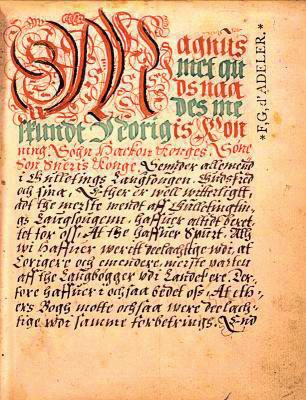 Magnus
met gu
ds naa
des me
kundt Norgis Kon
ning Søhn Hakon Konges Søne
Søn Sueris Konge. Sender allemend
i Gulletings Laugsongen. Gudsfred
och sina, Ether er well witterligt,
adt the meste mendt aff Gulletingh-
ings Laugsougenn, haffuer altidt beret-
tet for oss. At the haffuer Spurt. Att
wi haffuer werit deelachtige wdi, at
Corigere och emendere meste parten
aff the Laugbogger wdi Landet ere, Der-
fore haffuer i ochsaa bedet oss. At eth-
ers Bogh motte ochsaa were deelach-
tige wdi samme forbetrings. End
*F.G. d'ADELER.*